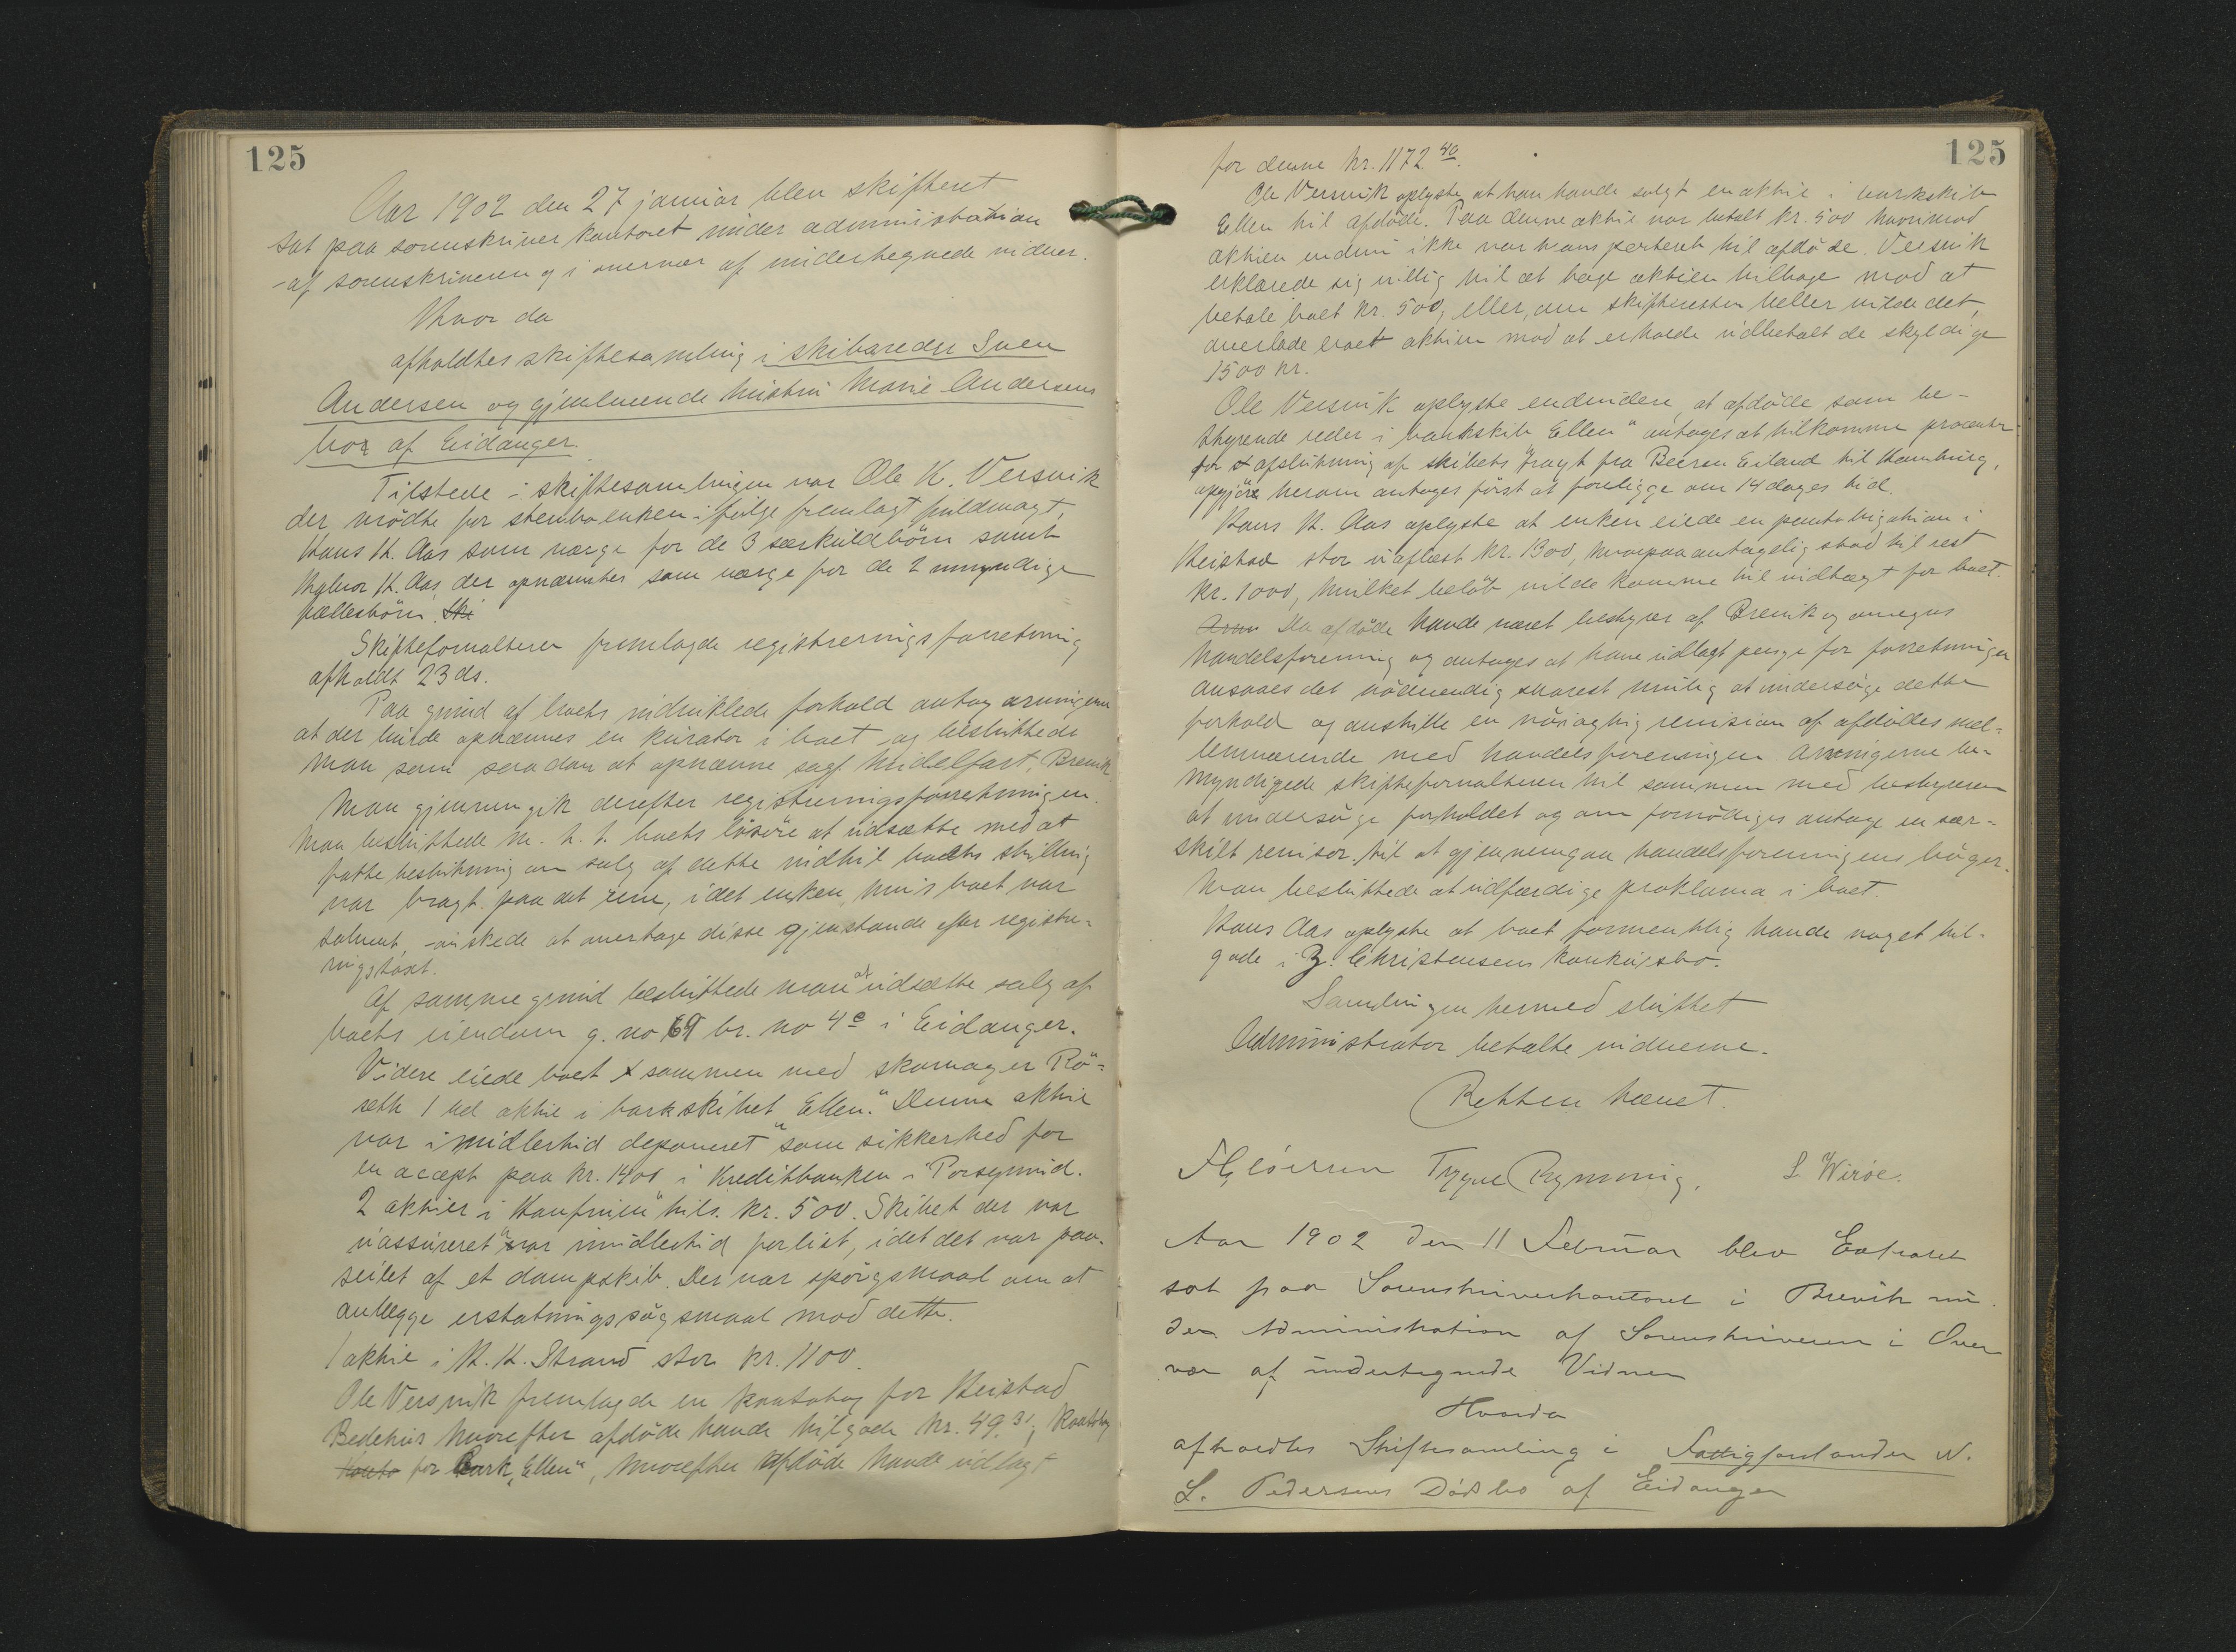 125
Aar 1902 den 27 januar blev skifteret
sat paa sorenskriverkontoret under administration
af sorenskriveren og i overvær af undertegnede vidner.
Hvor da
afholdtes skiftesamling i skibsreder Sven
Andersen og gjenlevende hustru Marie Andersens
bo af Eidanger.
Tilstede i skiftesamlingen var Ole K. Versvik
der mödte for sterboenken ifölge fremlagt fuldmagt,
Hans H. Aas som værge for de 3 særkuldbörn samt
Halvor H. Aas, der opnævntes som værge for de 2 umyndige
fællesbörn. Ski
Skifteforvalteren fremlagde registreringsforretning
afholdt 23 ds.
Paa grund af boets indviklede forhold antog arvingerne
at der burde opnævnes en kurator i boet og besluttede
man som saadan at opnævne sagf. Midelfart, Brevik
Man gjennemgik derefter registreringsforretningen.
Man besluttede m. h. t. boets lösöre at udsætte med at
fatte beslutning om salg af dette indtil boets stilling
var bragt paa det rene, idet enken, hvis boet var
solvent, önskede at overtage disse gjenstande efter registre-
ringstaxt.
Af samme grund besluttede man at udsætte salg af
boets eiendom g. no 69 br. no 4e i Eidanger.
Videre eiede boet sammen med skomager Rö-
seth 1 hel aktie i barkskibet "Ellen". Denne aktie
var imidlertid deponeret som sikkerhed for
en accept paa kr. 1400 i Kreditbanken i Porsgrund.
2 aktier i "Havfruen" tils. kr. 500. Skibet der var
uassureret var imidlertid forlist, idet det var paa-
seilet af et dampskib. Der var spörgsmaal om at
anlægge erstatningssögsmaal mod dette.
1 aktie i K. K. Strand stor kr. 1100.
Ole Versvik fremlagde en kontobog for Heistad
Bedehus hvorefter afdöde havde tilgode kr. 49.31, Kontobog
Konto for Bark "Ellen", hvorefter Afdöde havde udlagt
125
for denne kr. 1172.40.
Ole Versvik oplyste, at han havde solgt en aktie i barkskib
Ellen til afdöde. Paa denne aktie var betalt kr. 500 hvorimod
aktien endnu ikke var transporteret til afdöde. Versvik
erklærede sig villig til at tage aktien tilbage mod at
betale boet kr. 500, eller, om skifteretten heller vilde det,
overlade boet aktien mod at erholde udbetalt de skyldige
1500 kr.
Ole Versvik oplyste endvidere, at afdöde som be-
styrende reder i barkskib "Ellen" antages at tilkomme procenter
for afslutning af skibets fragt fra Beeren Eiland til Hamburg,
opgjöre herom antages först at foreligge om 14 dages tid.
Hans H. Aas oplyste at enken eiede en pantobligation i
Heistad stor uaflæst kr. 1300, hvorpaa antagelig stod til rest
kr. 1000, hvilket belöb vilde komme til indtægt for boet.
Da afdöde havde været bestyrer af Brevik og omegns
handelsforening og antages at have udlagt penge for forretningen
ansaaes det nödvendig snarest mulig at undersöge dette
forhold og anstille en nöiagtig revision af afdödes mel-
lemværende med handelsforeningen. Arvingerne be-
myndigede skifteforvalteren til sammen med bestyreren
at undersöge forholdet og om fornödiges antage en sær-
skilt revisor til at gjennemgaa handelsforeningens böger.
Man besluttede at udfærdige proklama i boet.
Hans Aas oplyste at boet formentlig havde noget til-
gode i Z. Christensens konkursbo.
Samlingen hermed sluttet
Administrator betalte vidnerne.
Retten hævet.
Trygve Rynning. L Wiröe.
Aar 1902 den 11 Februar blev Extraret
sat paa Sorenskriverkontoret i Brevik un-
der Administration af Sorenskriveren i Over-
vær af undertegnede Vidner
Hvorda
afholdtes Skiftesamling i Fattigforstander N.
L. Pedersens Dödsbo af Eidanger